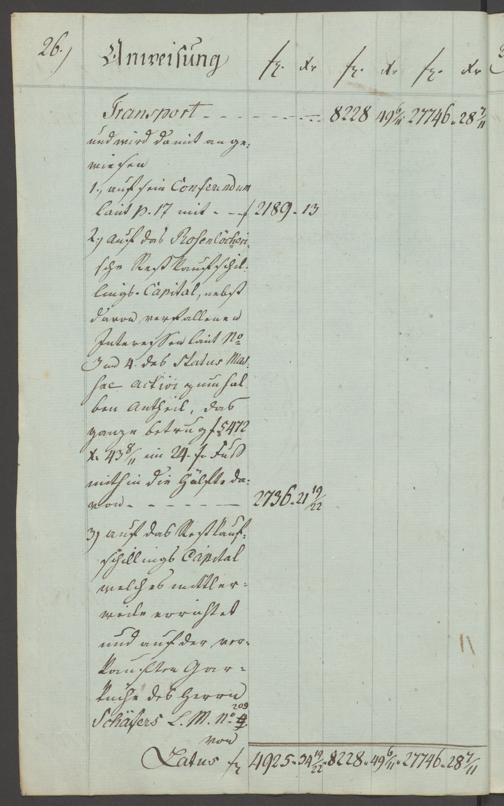 26.) Anweisung fl. Xr fl. Xr fl. Xr
Transport - - - - - - - - 8228 49 6/11 27746. 28 7/11
und wird damit ange:
wiesen
1.) auf sein Conferendum
laut p. 17 mit - - f 2189. 13
2.) auf das Rosenlöcheri:
sche Restkaufschil:
lings-Capital, nebst
davon verfallenen
Interessen laut No
3 und 4. des Status Mas:
sae activi zum hal
ben Antheil, das
ganze betrug f 5472
Xr 43 8/11 im 24. f. Fuß
mithin die Hälfte da:
von - - - - - - - 2736. 21 19/22
3.) auf das Restkauf:
schillings Capital
welches mittler:
weile errichtet
und auf der ver:
kauften Gar:
küche des Herrn
Schäfers L. M. No 209
von
Latus fl 4925. 34 19/22. 8228. 49 6/11. 27746. 28 7/11